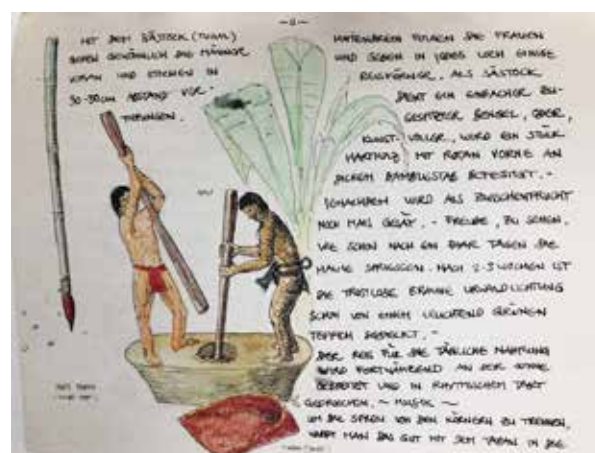 — 11 —
MIT DEM SÄSTOCK (TUGAL)
GEHEN GEWÖHNLICH DIE MÄNNER
VORAN UND STECHEN IN
30-50cm ABSTAND VER-
TIEFUNGEN.
HINTENDREIN FOLGEN DIE FRAUEN
UND IN JEDES LOCH EINIGE
REISKÖRNER. ALS SÄSTOCK
DIENT EIN EINFACHER ZU-
GESPITZTER BENGEL, ODER,
KUNST-VOLLER, WIRD EIN STÜCK
HARTHOLZ MIT ROTAN VORNE AN
DICKEM BAMBUSSTAB BEFESTIGT. -
WIRD ALS ZWISCHENFRUCHT
NOCH MAIS GESÄT. - FREUDE, ZU SEHEN,
WIE SCHON NACH EIN PAAR TAGEN DIE
HALME SPRIESSEN. NACH 2-3 WOCHEN IST
DIE TROSTLOSE BRAUNE URWALDLICHTUNG
SCHON VON EINEM LEUCHTEND GRÜNEN
TEPPICH BEDECKT. -
DER REIS FÜR DIE TÄGLICHE NAHRUNG
WIRD FORTWÄHREND AN DER SONNE
UND IN RHYTMISCHEM TAKT
GEDROSCHEN. ~ MUSIK ~
UM DIE SPREU VON DEN KÖRNERN ZU TRENNEN,
WIRFT MAN DAS GUT MIT DEM TAPAN IN DIE